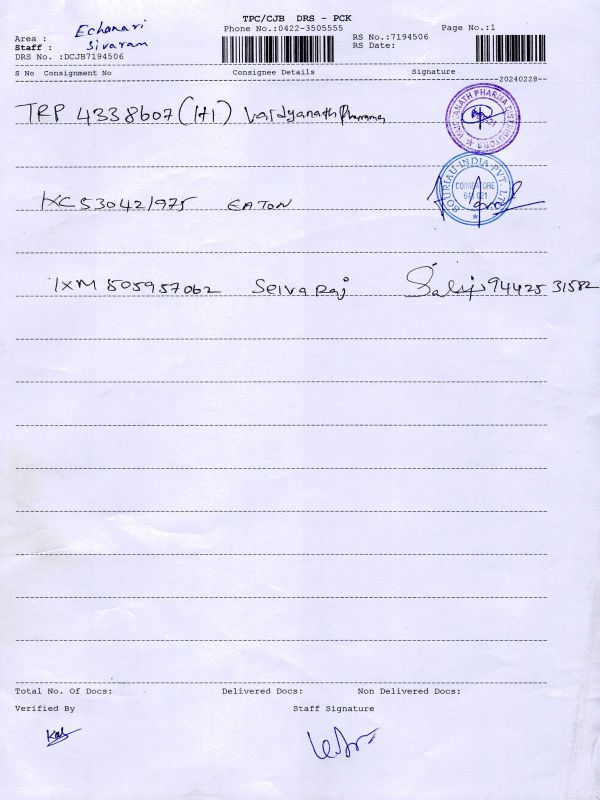 TPC/CJB DRS - PCK
Phone No.:0422-3505555
Page No.:1
Area : Echanari
Staff : Sivaram
RS No.:7194506
RS Date:
DRS No. :DCJB7194506
S No Consignment No Consignee Details Signature
20240228
TRP 4338607 (1+1) Vaidyanath Pharma
VAIDYANATH PHARMA DISTRIBUTORS
IXC 530421975 EATON
SOURIAU INDIA PVT. LTD
COIMBATORE
641 021
IXM 505957062 Selvaraj 94425 31582
Total No. Of Docs: Delivered Docs: Non Delivered Docs:
Verified By Staff Signature